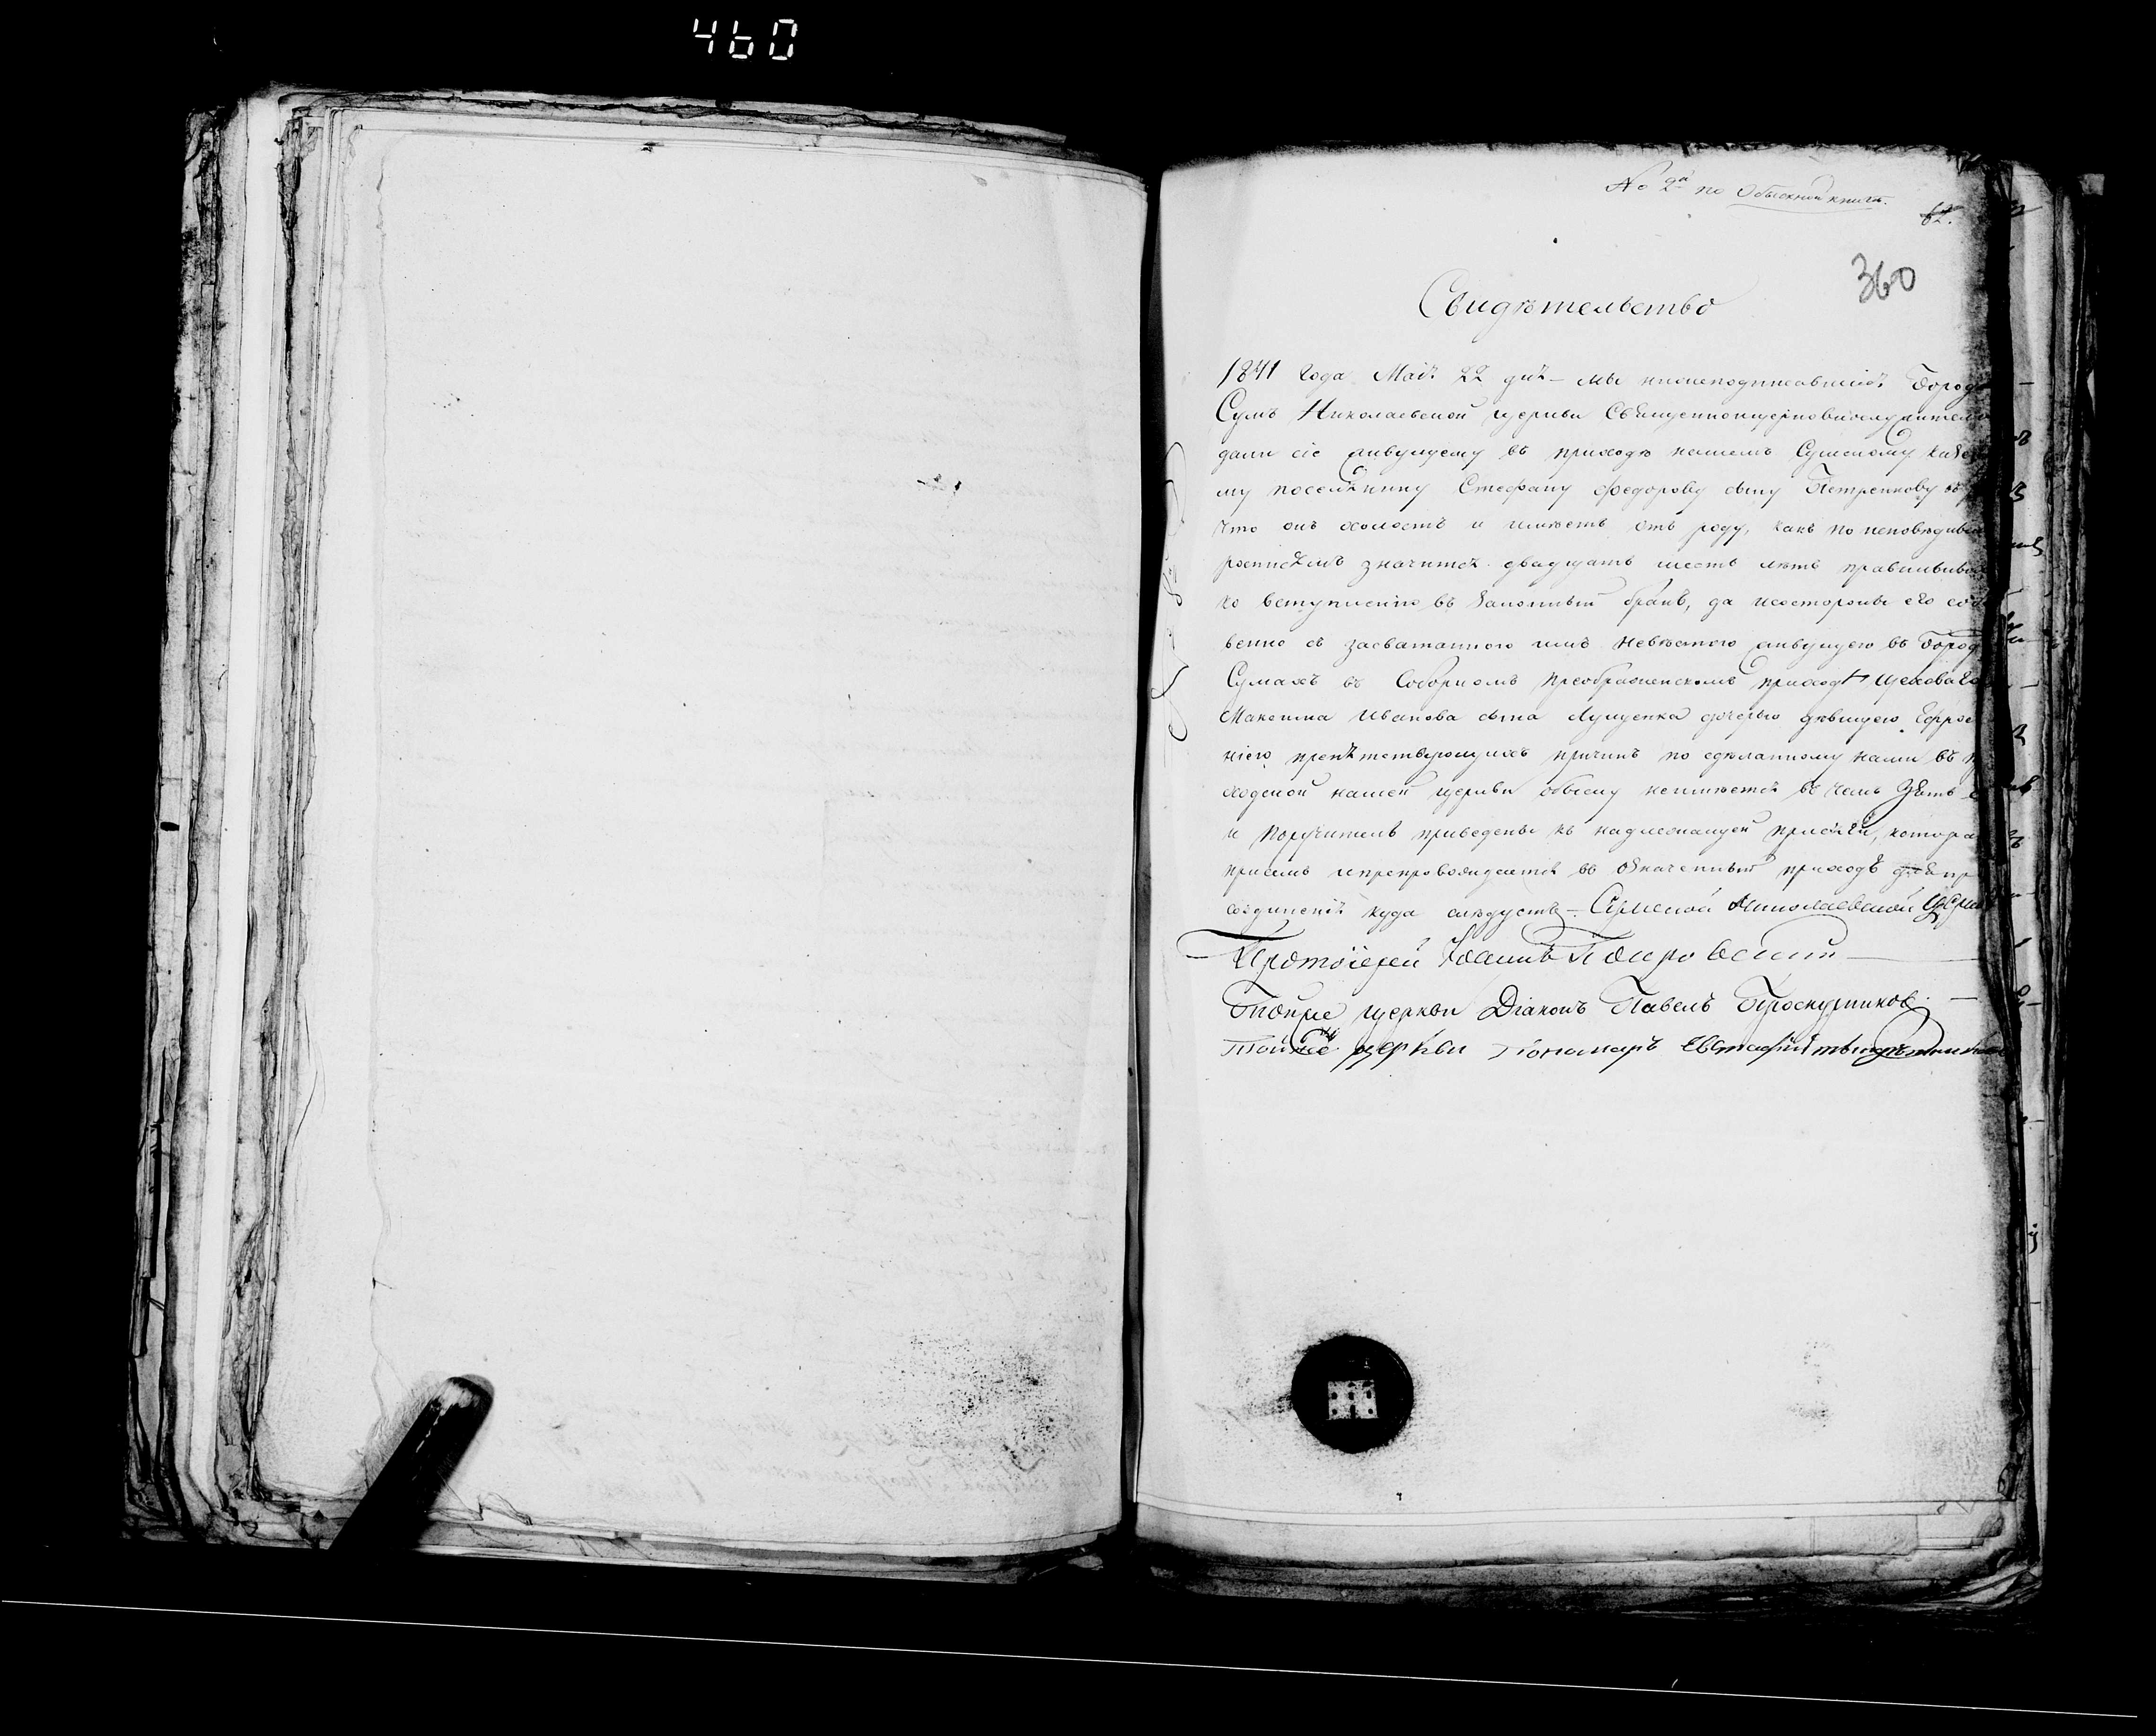 460
No 2й по Обыскной книгѣ.
62.
360
Свидѣтельство
1841 года Маія 22 дня – мы нижеподписавшіися Города
Сумъ Николаевской церкви Священноцерковнослужители
дали сіе живущему въ приходѣ нашемъ Сумскому казен
му поселянину Стефану Федорову сыну Петренкову въ
что онъ холостъ и имѣетъ отъ роду, какъ по исповѣднымъ
росписямъ значится двадцать шесть лѣтъ правильных
ко вступленію въ законный бракъ, да исостороны его соб
венно съ засватанною имъ невѣстою живущею въ Город
Сумахъ въ Соборномъ Преображенскомъ приходѣ цеховаго
Максима Иванова сына Луценка дочерью дѣвицею Ефрос
ніею препятствующихъ причинъ по сдѣланному нами въ п
ходской нашей церкви обыску неимѣется въ чемъ Зять
и поручители приведены къ надлежащей присягѣ, котора
присемъ ипрепровождается въ означенный приходъ для пр
соединенія куда слѣдуетъ – Сумской Николаевской Церкви
Протоіерей Іоаннъ Покровскій
Тойже церкви Діаконъ Павелъ Проскурниковъ. –
Тойже церкви Пономарь Евстафій